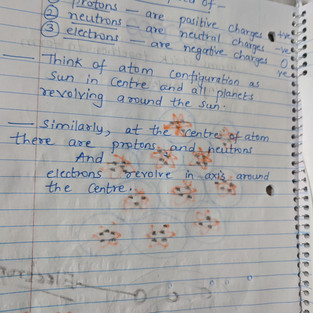 ① protons — are positive charges +ve
② neutrons — are neutral charges
③ electrons — are negative charges
— Think of atom configuration as
Sun in centre and all planets
revolving around the sun.
— Similarly, at the centre of atom
there are protons and neutrons
And
electrons revolve in axis around
the centre.